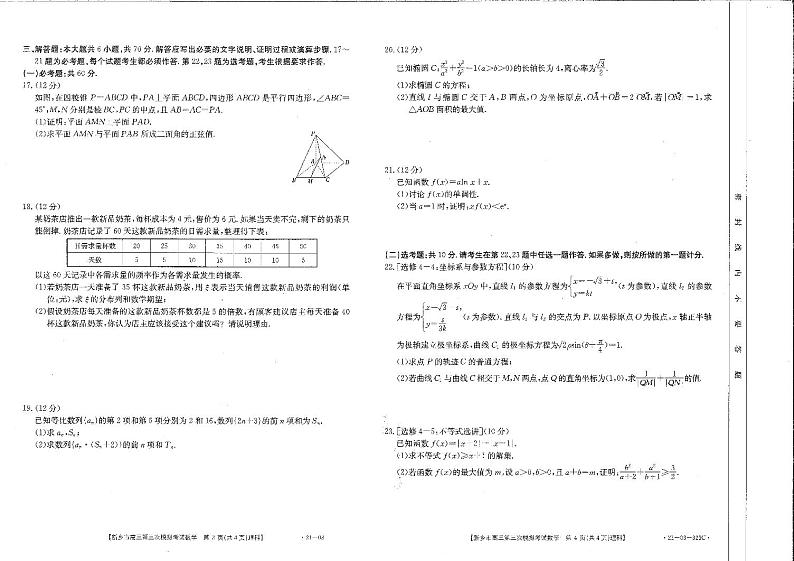 三、解答题:本大题共6小题,共70分.解答应写出必要的文字说明、证明过程或演算步骤.17~
21题为必考题,每个试题考生都必须作答.第22,23题为选考题,考生根据要求作答.
(一)必考题:共60分.
17.(12分)
如图,在四棱锥P-ABCD中,PA⊥平面ABCD,四边形ABCD是平行四边形,∠ABC=
45°,M,N分别是棱BC,PC的中点,且AB=AC=PA.
(1)证明:平面AMN⊥平面PAD.
(2)求平面AMN与平面PAB所成二面角的正弦值.
P
N
A
D
B
M
C
18.(12分)
某奶茶店推出一款新品奶茶,每杯成本为4元,售价为6元.如果当天卖不完,剩下的奶茶只
能倒掉.奶茶店记录了60天这款新品奶茶的日需求量,整理得下表:
日需求量杯数 20 25 30 35 40 45 50
天数 5 5 10 15 10 10 5
以这60天记录中各需求量的频率作为各需求量发生的概率.
(1)若奶茶店一天准备了35杯这款新品奶茶,用ξ表示当天销售这款新品奶茶的利润(单
位:元),求ξ的分布列和数学期望;
(2)假设奶茶店每天准备的这款新品奶茶杯数都是5的倍数,有顾客建议店主每天准备40
杯这款新品奶茶,你认为店主应该接受这个建议吗?请说明理由.
19.(12分)
已知等比数列{aₙ}的第2项和第5项分别为2和16,数列{2n+3}的前n项和为Sₙ.
(1)求aₙ,Sₙ;
(2)求数列{aₙ·(Sₙ+2)}的前n项和Tₙ.
【新乡市高三第三次模拟考试数学 第3页(共4页)理科】
·21-03
20.(12分)
已知椭圆C:x²/a²+y²/b²=1(a>b>0)的长轴长为4,离心率为√3/2.
(1)求椭圆C的方程;
(2)直线l与椭圆C交于A,B两点,O为坐标原点,OA+OB=2OM,若|OM|=1,求
△AOB面积的最大值.
21.(12分)
已知函数f(x)=aln x+x.
(1)讨论f(x)的单调性.
(2)当a=1时,证明:xf(x)<eˣ.
(二)选考题:共10分.请考生在第22,23题中任选一题作答.如果多做,则按所做的第一题计分.
22.[选修4-4:坐标系与参数方程](10分)
在平面直角坐标系xOy中,直线l₁的参数方程为{x=-√3+t, y=kt (t为参数),直线l₂的参数
方程为{x=√3-s, y=s/3k (s为参数).直线l₁与l₂的交点为P.以坐标原点O为极点,x轴正半轴
为极轴建立极坐标系,曲线C₁的极坐标方程为√2ρsin(θ+π/4)=1.
(1)求点P的轨迹C的普通方程;
(2)若曲线C₁与曲线C相交于M,N两点,点Q的直角坐标为(1,0),求1/|QM|+1/|QN|的值.
23.[选修4-5:不等式选讲](10分)
已知函数f(x)=|x+2|-|x-1|.
(1)求不等式f(x)≥x+1的解集.
(2)若函数f(x)的最大值为m,设a>0,b>0,且a+b=m,证明:b²/(a+2)+a²/(b+1)≥3/2.
【新乡市高三第三次模拟考试数学 第4页(共4页)理科】
·21-03-325C·
密
封
线
内
不
要
答
题